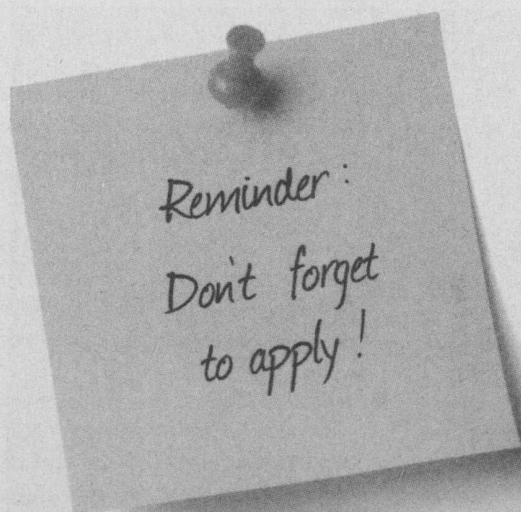 Reminder:
Don't forget
to apply!